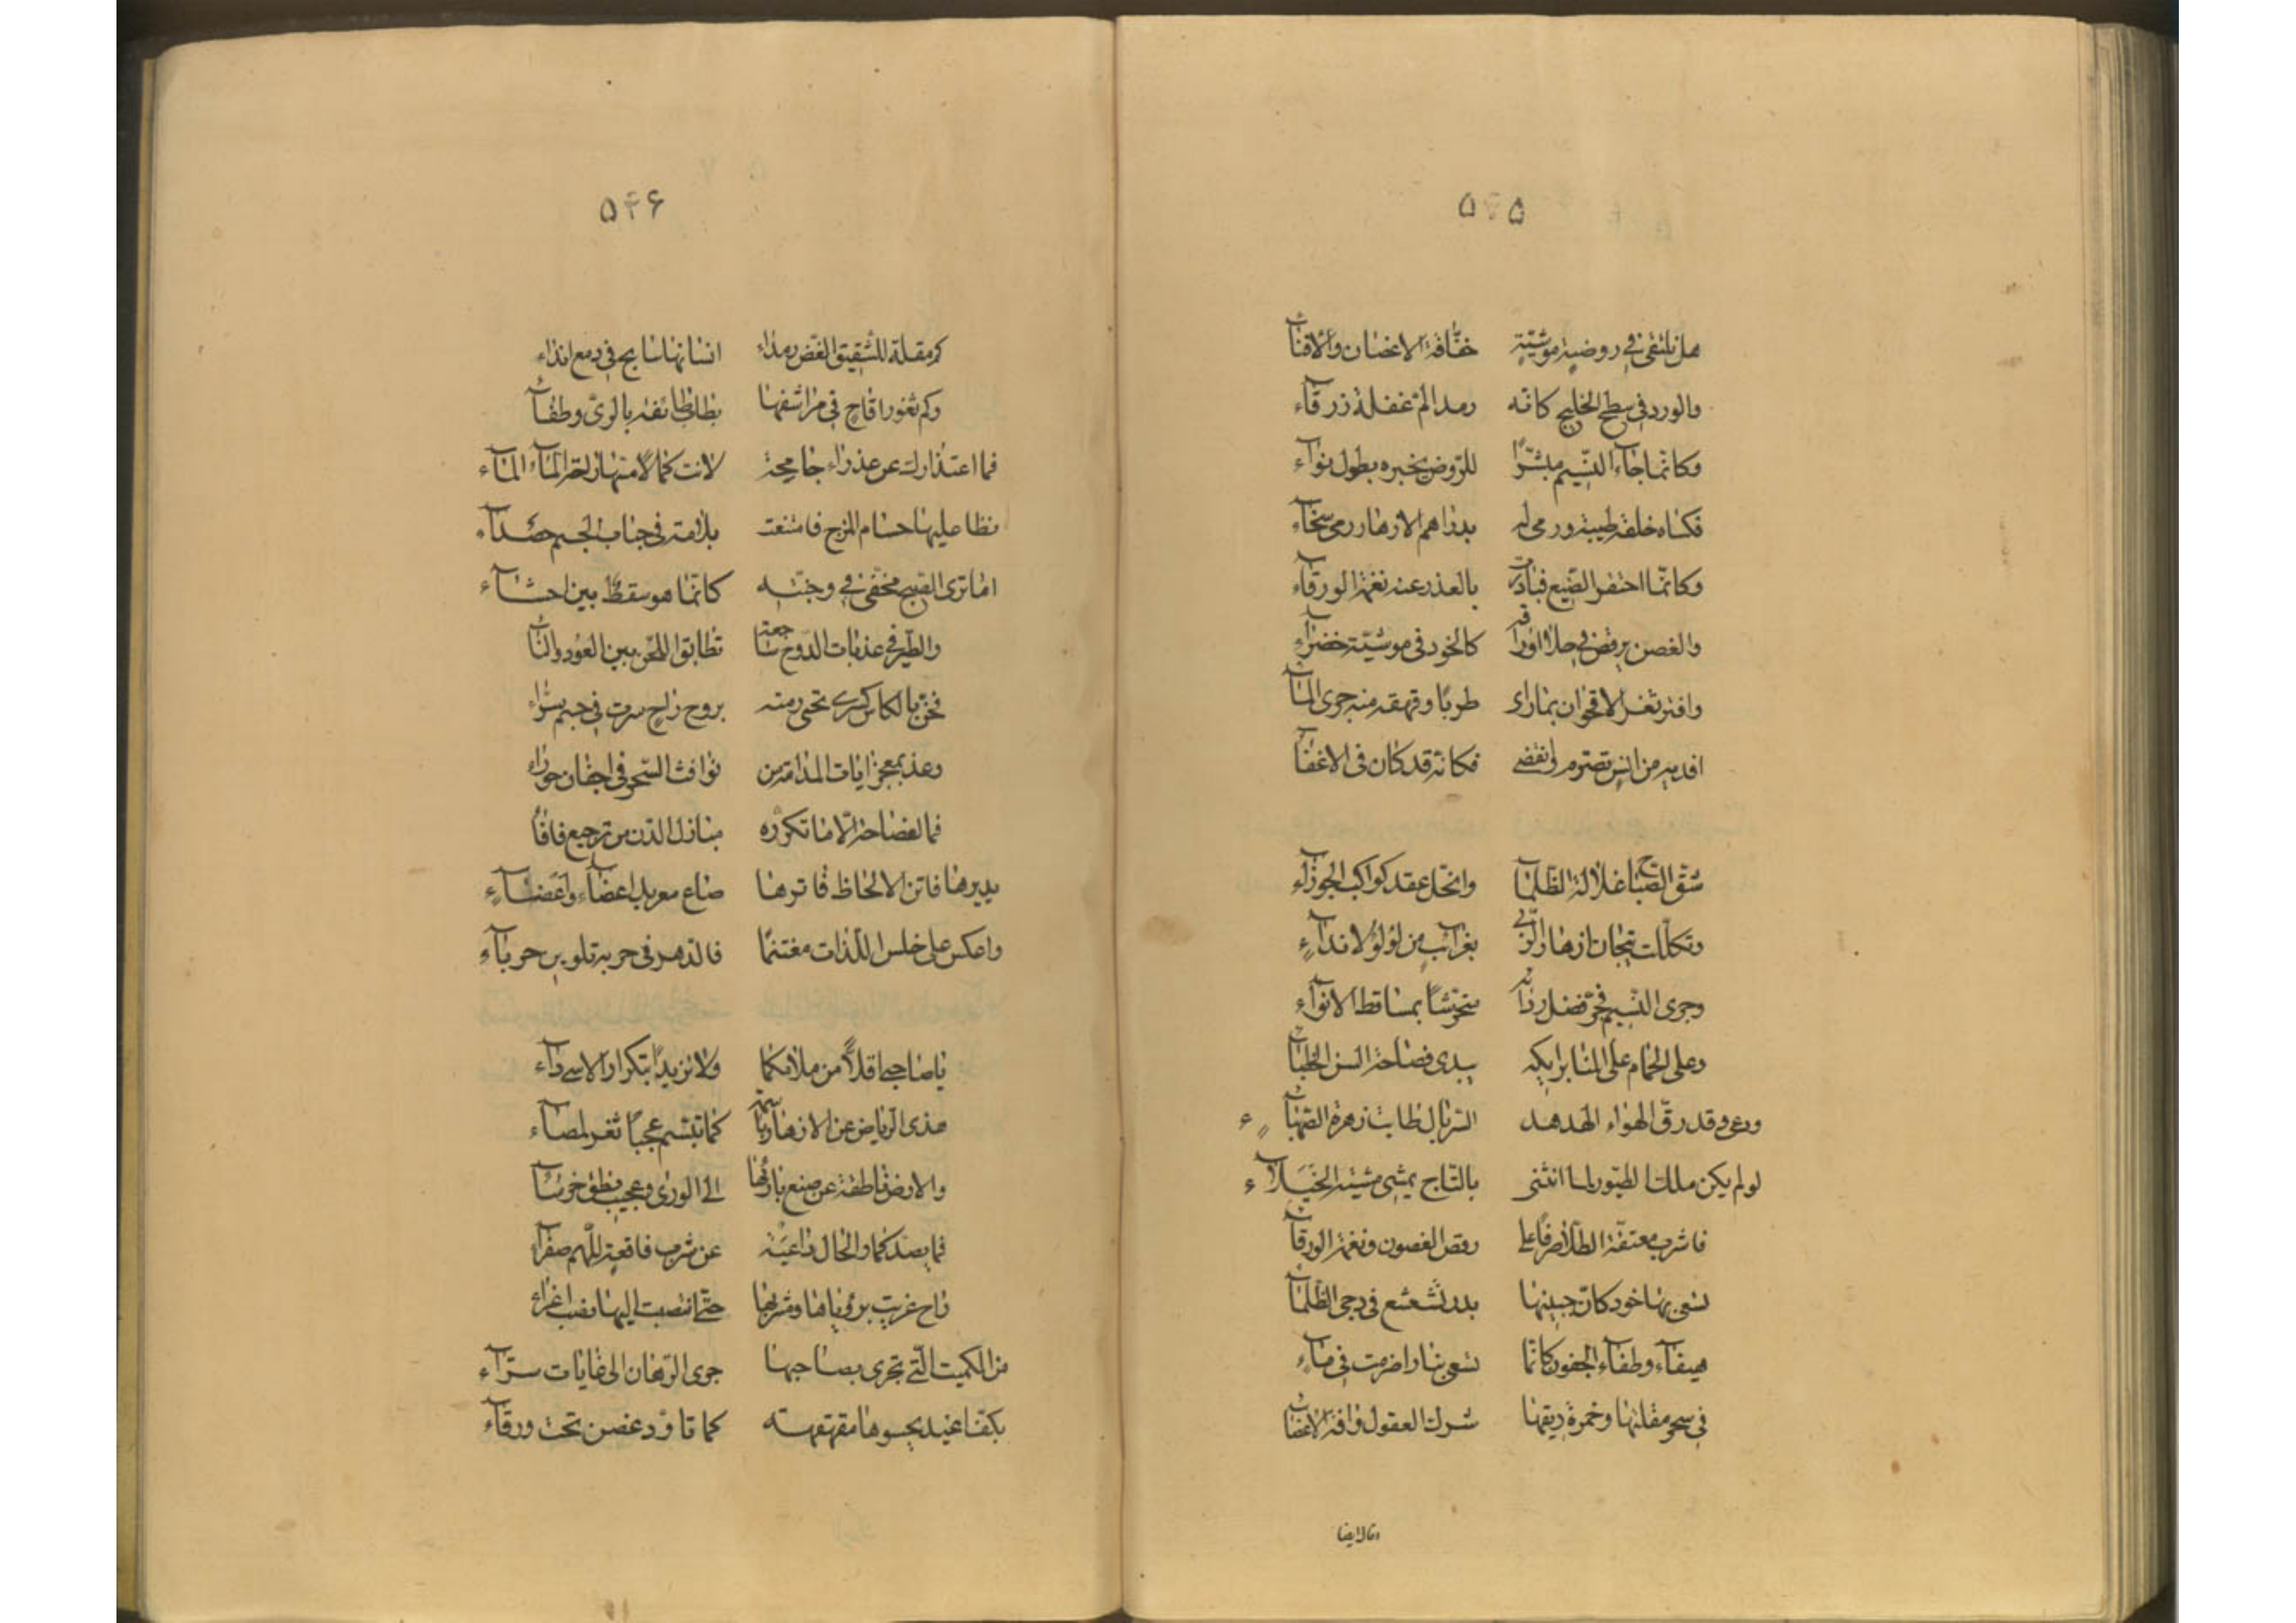 ۵۴۵
هل نلتقي في روضة موشيّة خفّاقة الاغصان والافنآء
والورد في سطح الخليج كانّه رمد المّ بمقلة زرقآء
وكانّما جآء النّسيم مبشّرًا للرّوض يخبره بطول بقآء
فكساه خلعة طيبه ورمى له بدراهم الازهار رمي سخآء
وكانّما احتقر الصّنيع فبادرت بالعذر عنه نغمة الورقآء
والغصن يرقص في حلا اوراقه كالخود في موشيّة خضرآء
وافترّ ثغر الاقحوان بما راى طربًا وقهقه منه جرى المآء
افديه من انس تصرّم وانقضى فكانّه قد كان في الاغفآء
شقّ الصّباح غلالة الظّلمآء وانحلّ عقد كواكب الجوزآء
وتكلّلت تيجان ازهار الرّبى بغرآئب من لؤلؤ الاندآء
وجرى النّسيم فجرّ فضل ردآئه متحرّشًا بمساقط الانوآء
وعلى الحمام على المنابر ايكه يبدي فصاحة السن الخطبآء
ورعى وقد رقّ الهواء الهدهد السّربال طابت زهرة الصّهبآء
لو لم يكن ملك الطّيور لما انثنى بالتّاج يمشي مشية الخيلآء
فاشرب معتّقة الطّلا صرفًا على رقص الغصون ونغمة الورقآء
تسعى بها خود كانّ جبينها بدر تشعشع في دجى الظّلمآء
هيفآء وطفآء الجفون كانّما تسعى بنار اضرمت في مآء
في سحر مقلتها وخمرة ريقها شرك العقول وآفة الاعضآء
وقال ايضا
۵۴۶
كم مقلة للشّقيق الغضّ رمدآء انسانها سابح في دمع اندآء
وكم ثغور اقاح في مراشفها
فما اعتذارك عن عذرآء جامحة لانت كما لامتها المآء
سطا عليها حسام المزج فامتنعت بلامة في حباب الجسم حصدآء
اما ترى الصّبح مخفى في دجنّته كانّما هو سقط بين احشآء
والطّير في عذبات الدّوح ساجعة تطابق اللّحن بين العود والنّآء
فحيّ بالكاس كسرى تحيى رمّته بروح راح سرت في جسم سرّآء
وعذ بمعجز ايات المدامة من نوافث السّحر في اجفان حورآء
فما الفصاحة الّا ما تكرّره منازل الدّنّ من ترجيع فافآء
يديرها فاتن الالحاظ فاترها صاع معربد اعضآء واغضآء
واعكس على خلس اللّذات مغتنمًا فالدّهر في حربه تلوين حربآء
يا صاحبي اقلّا من ملامكما ولا تزيدا بتكرار الاسى دآء
هذي الرّياض عن الازهار باسمة كما تبسّم عجبًا ثغر لميآء
والارض ناطقة عن صنع بارئها الى الورى وعجيب نطق خرسآء
فما يصدّكما والحال داعية عن شرب فاقعة للهمّ صفرآء
راح غريت بريّاها ومشربها حتّى انتصبت اليها نصب اغرآء
من الكميت الّتي تجري بصاحبها جري الرّهان الى غايات سرّآء
بكفّ اغيد يحسوها مقهقهة كما تاوّد غصن تحت ورقآء